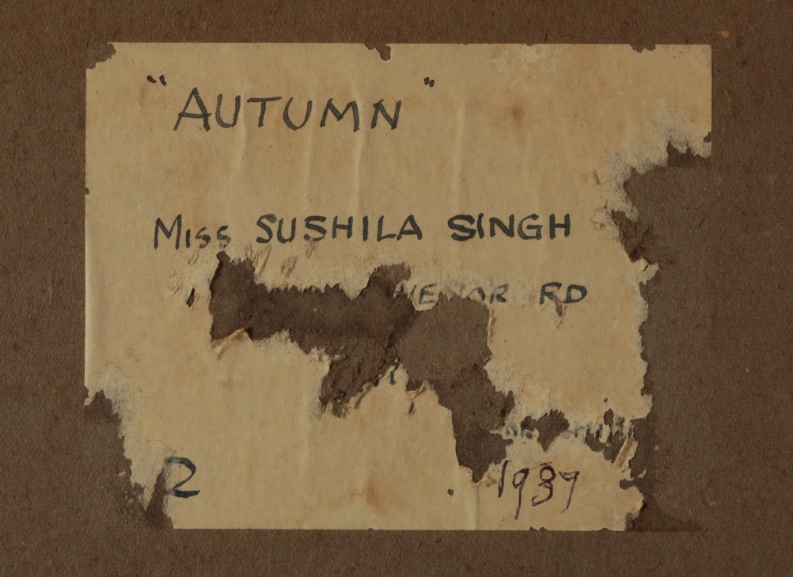 "AUTUMN"
MISS SUSHILA SINGH
RD
2
1937